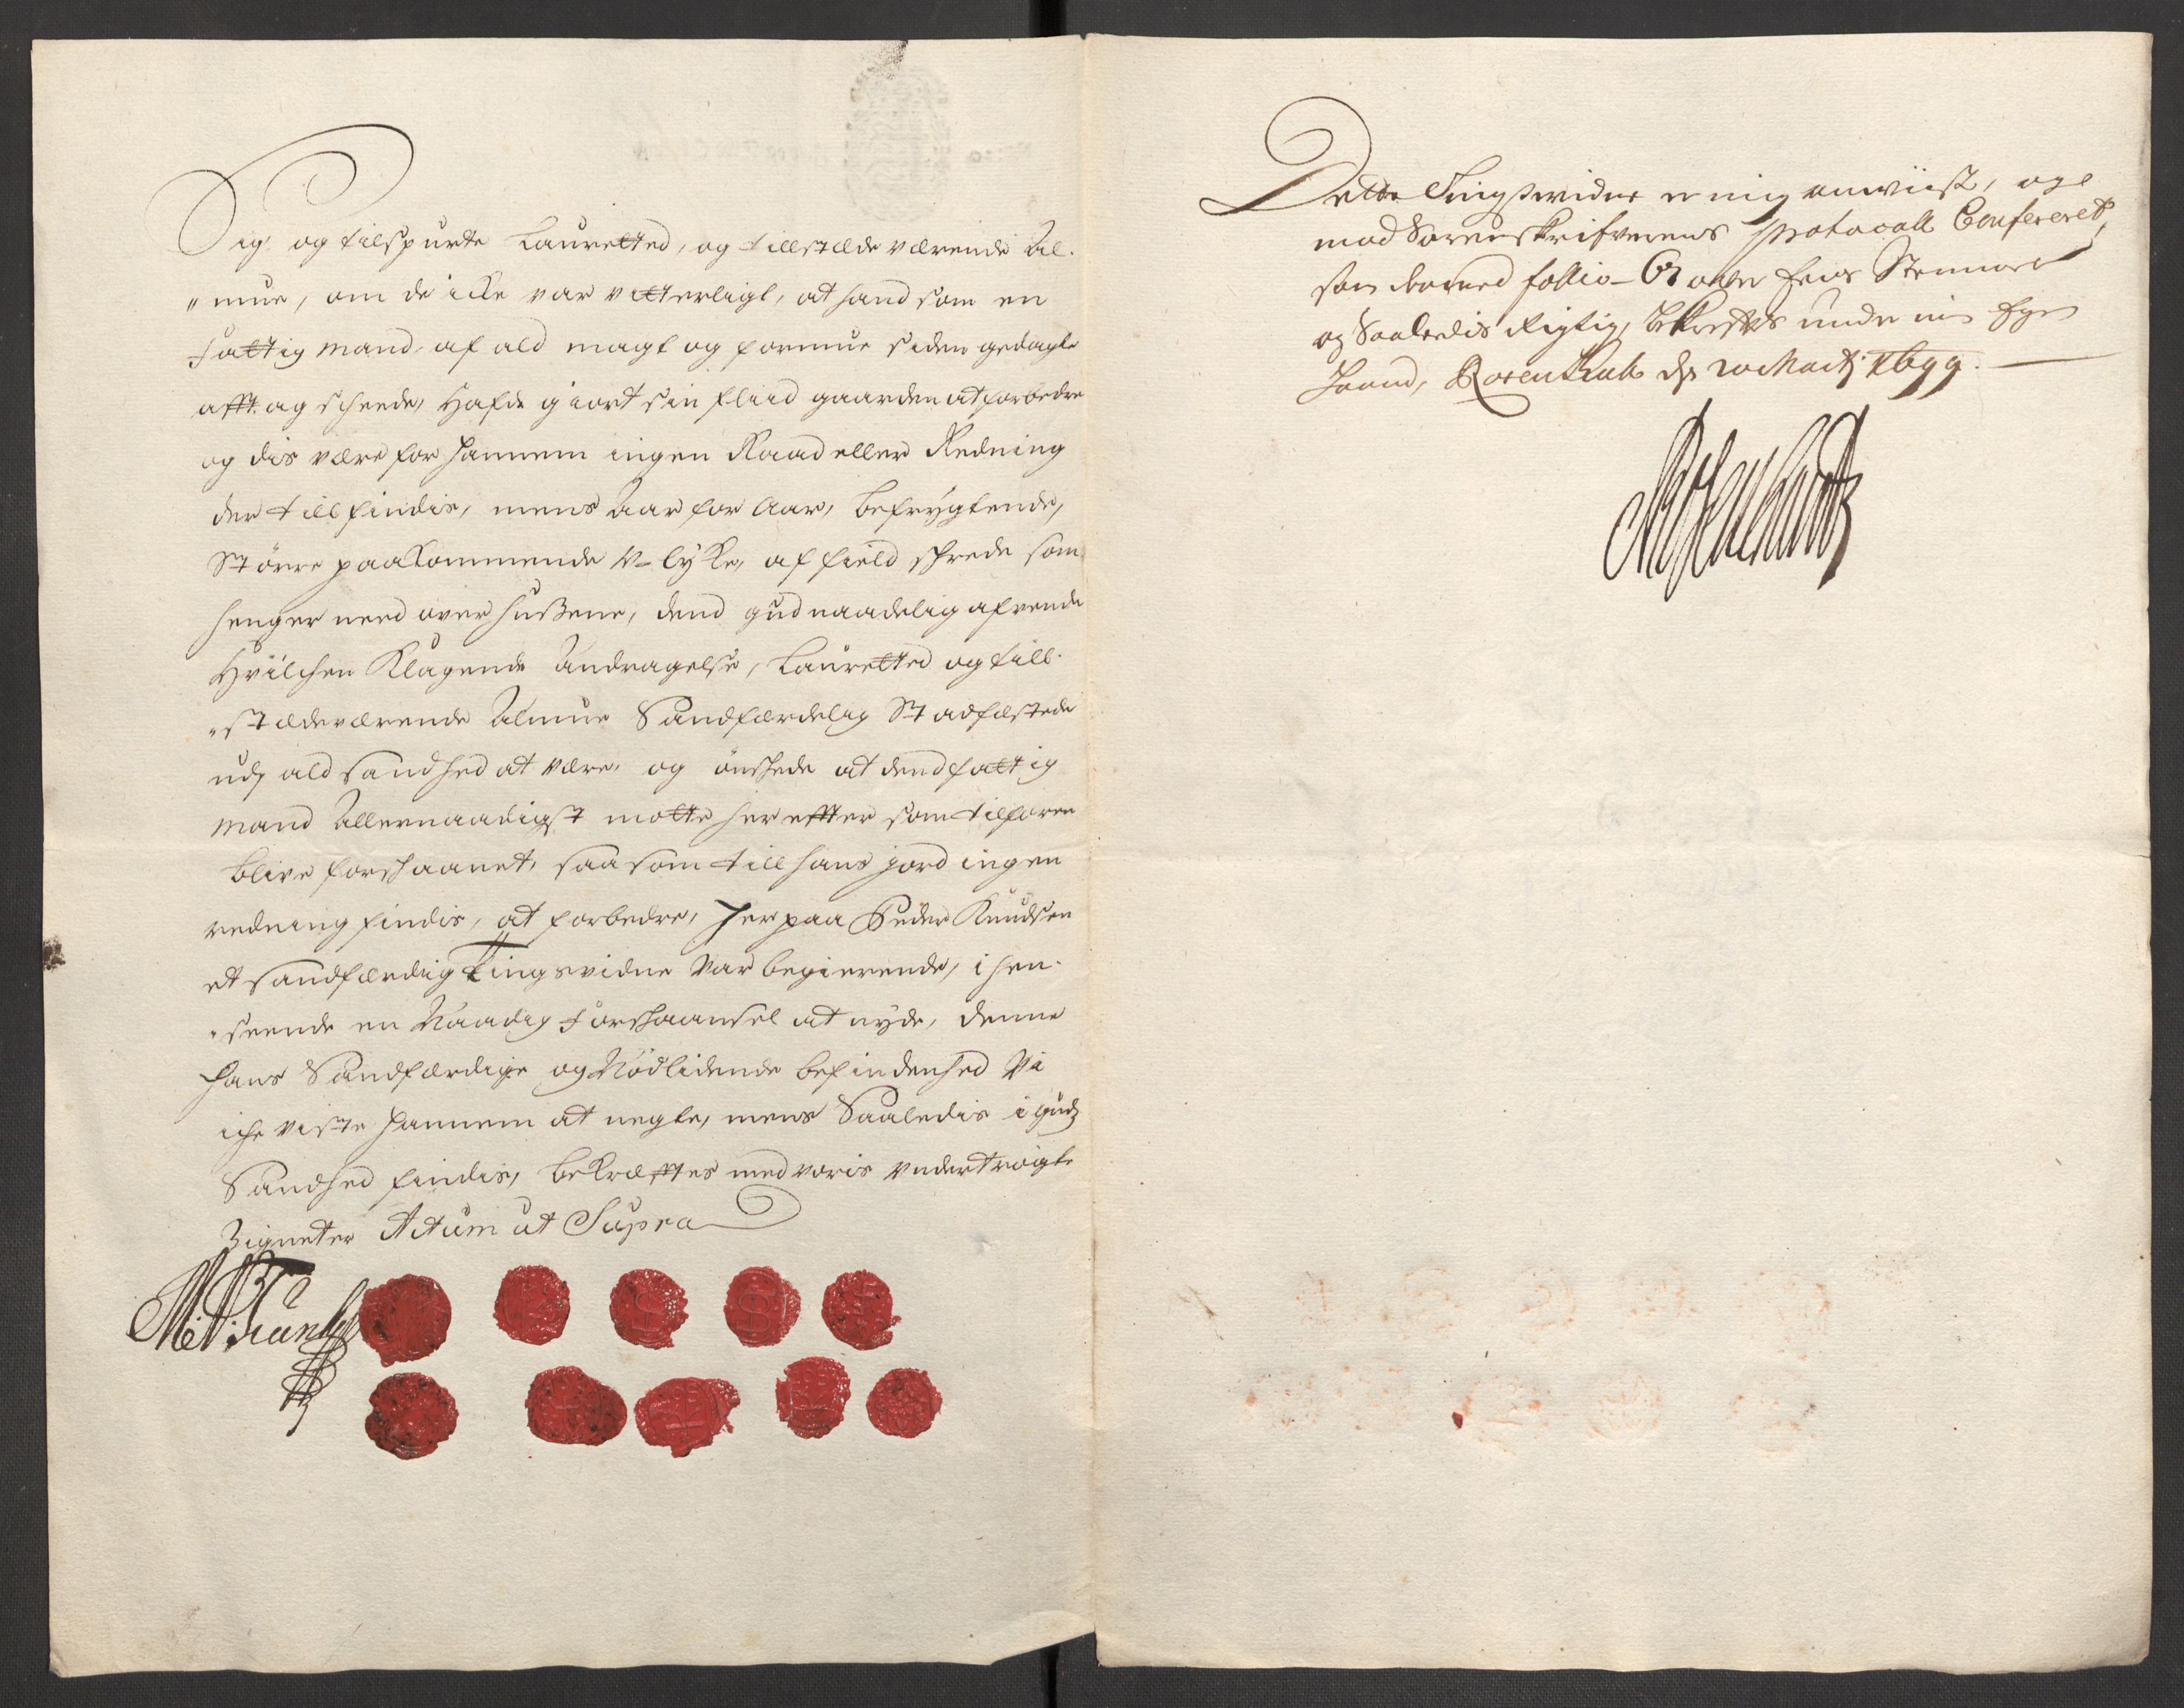 Sig og tilspurte Laurretted, og tillstæde værende Al-
"mue, om de icke var vitterligt, at hand som en
fattig mand, af ald magt og formue siden gedagte
afft. ag scheede, Hafde giort sin fliid gaarden at forbedre
og dis være for hannem ingen Raad eller Redning
der till findis, mens Aar for Aar, befrygtende,
Större paakommende U-lykke, af field schrede som
henger need over hussene, dend gud naadelig afvende
Hvilchen Klagende Andragelse, Lauretted og till-
"stædeværende Almue Sandfærdelig Stadfæstede
udj ald sandhed at være, og önschede at dend fattig
mand Allernaadigst motte her effter som tilforen
blive forschaanet, saasom till hans jord ingen
redning findis, at forbedre, her paa Peder Knudsen
et sandfærdig Tingsvidne var begierende, i hen-
"seende en Naadig forschaansel at nyde, denne
hans Sandfærdige og Nödlidende befindenhed Vi
iche viste hannem at negte, mens Saaledis i gudz
Sandhed findis, bekræfftes med voris undertrögte
Zigneter Actum ut Supra

Dette Tingsvidne er mig anviist, og
mod Sorenskrifverens Protocoll Confereret,
som dermed follio- 67 over Eens Stemmer
og Saaledis Rigtig, Bekrefftes under min Egen
Haand, Rosendahl 1699.